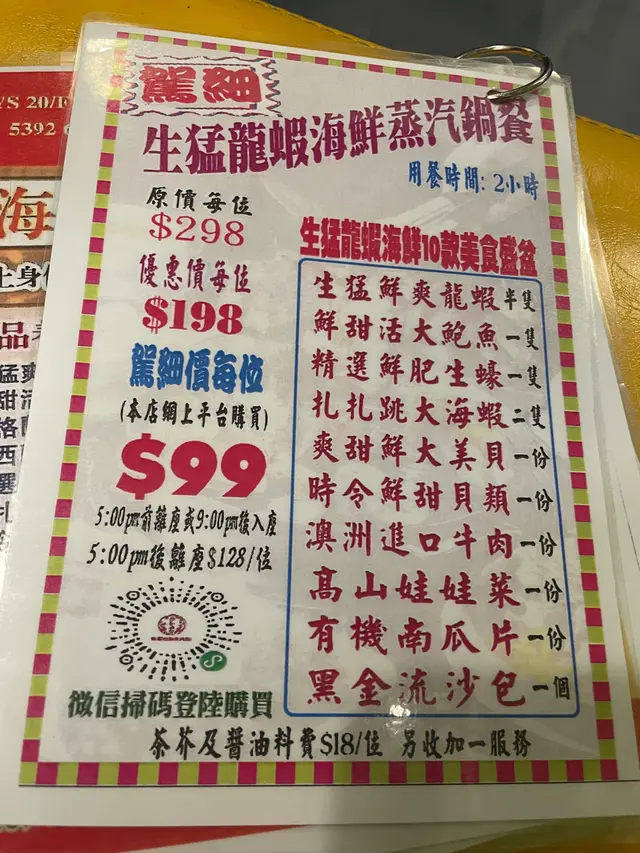 YS 20/F
5392
海
品
駕細
生猛龍蝦海鮮蒸汽鍋餐
用餐時間: 2小時
原價每位
$298
優惠價每位
$198
駕細價每位
(本店網上平台購買)
$99
5:00pm前離座或9:00pm後入座
5:00pm後離座$128/位
微信掃碼登陸購買
生猛龍蝦海鮮10款美食盛盆
生猛鮮爽龍蝦半隻
鮮甜活大鮑魚一隻
精選鮮肥生蠔一隻
扎扎跳大海蝦二隻
爽甜鮮大美貝一份
時令鮮甜貝類一份
澳洲進口牛肉一份
高山娃娃菜一份
有機南瓜片一份
黑金流沙包一個
茶芥及醬油料費$18/位 另收加一服務